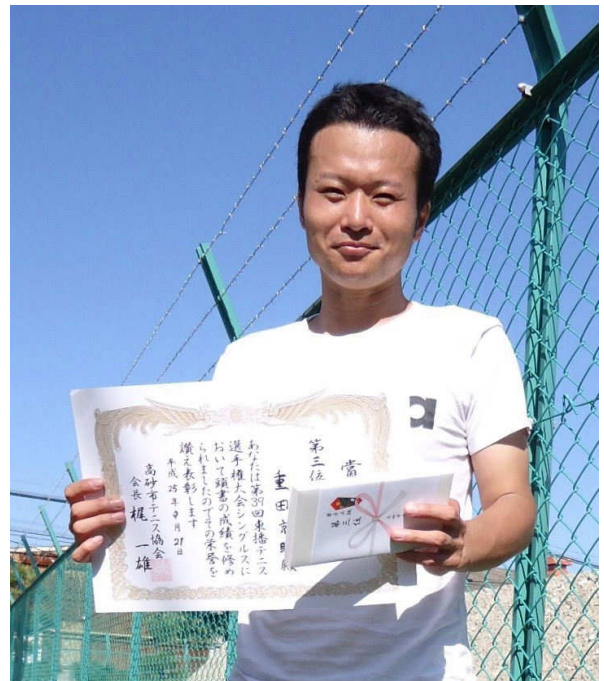 賞
第三位
重田
あなたは第39回東播テニス
選手権大会シングルスに
おいて頭書の成績を修め
られましたのでその栄誉を
讃え表彰します
平成25年9月21日
高砂市テニス協会
会長 梶 一雄
第三位
a